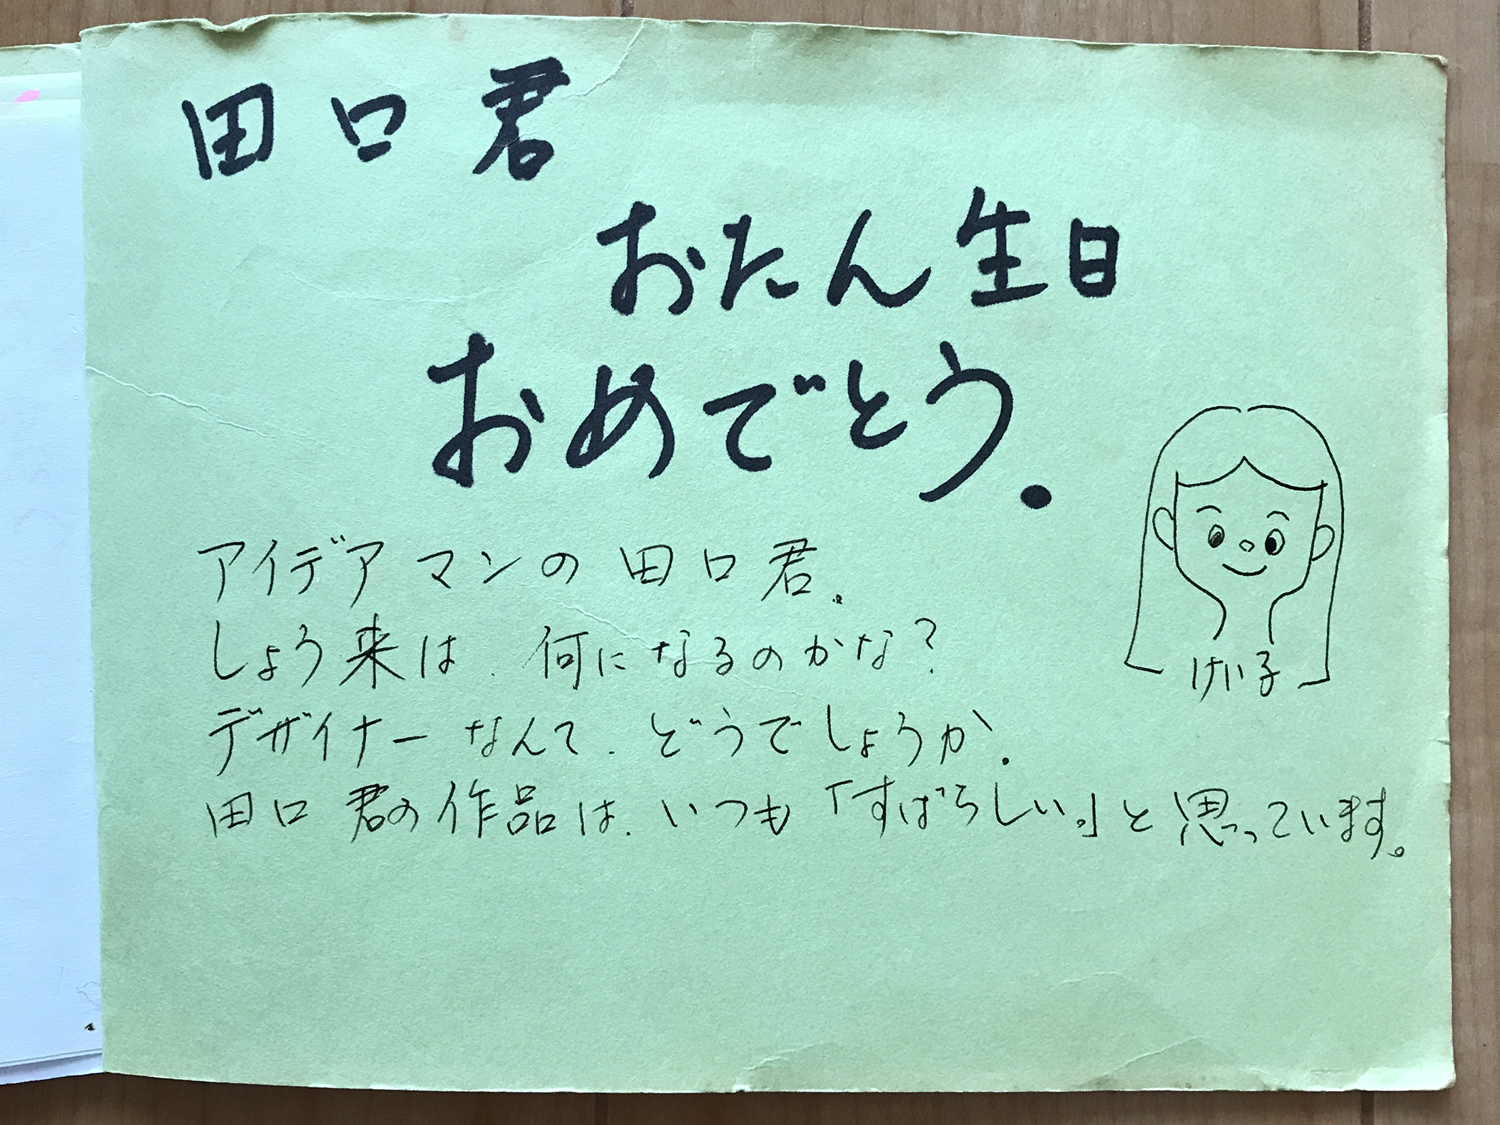 田口君
おたん生日
おめでとう.
アイデアマンの田口君。
しょう来は、何になるのかな?
デザイナーなんて、どうでしょうか.
田口君の作品は、いつも「すばらしい。」と思っています。
けい子